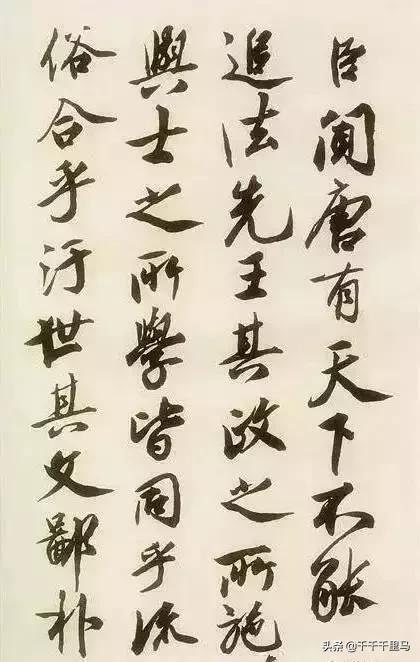 臣闻唐有天下不能
追法先王其政之所施
與士之所學皆同乎流
俗合乎汙世其文鄙朴
头条 @千千千里马